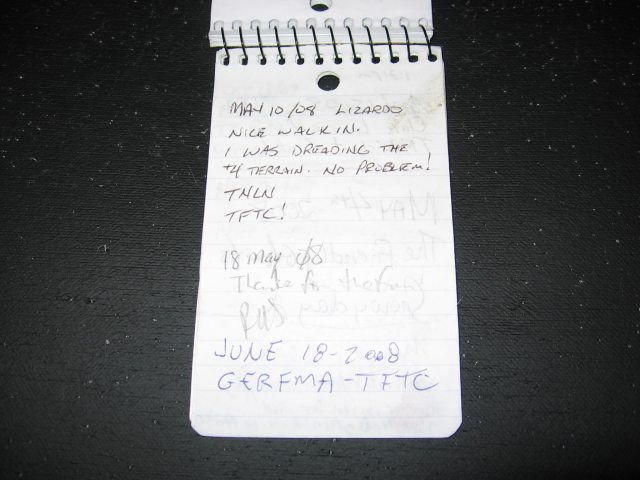 MAY 10/08 LIZARDO
NICE WALK IN.
I WAS DREADING THE
4 TERRAIN. NO PROBLEM!
TNLN
TFTC!
18 May 08
Thanks for the
JUNE 18-2008
GERFMA-TFTC